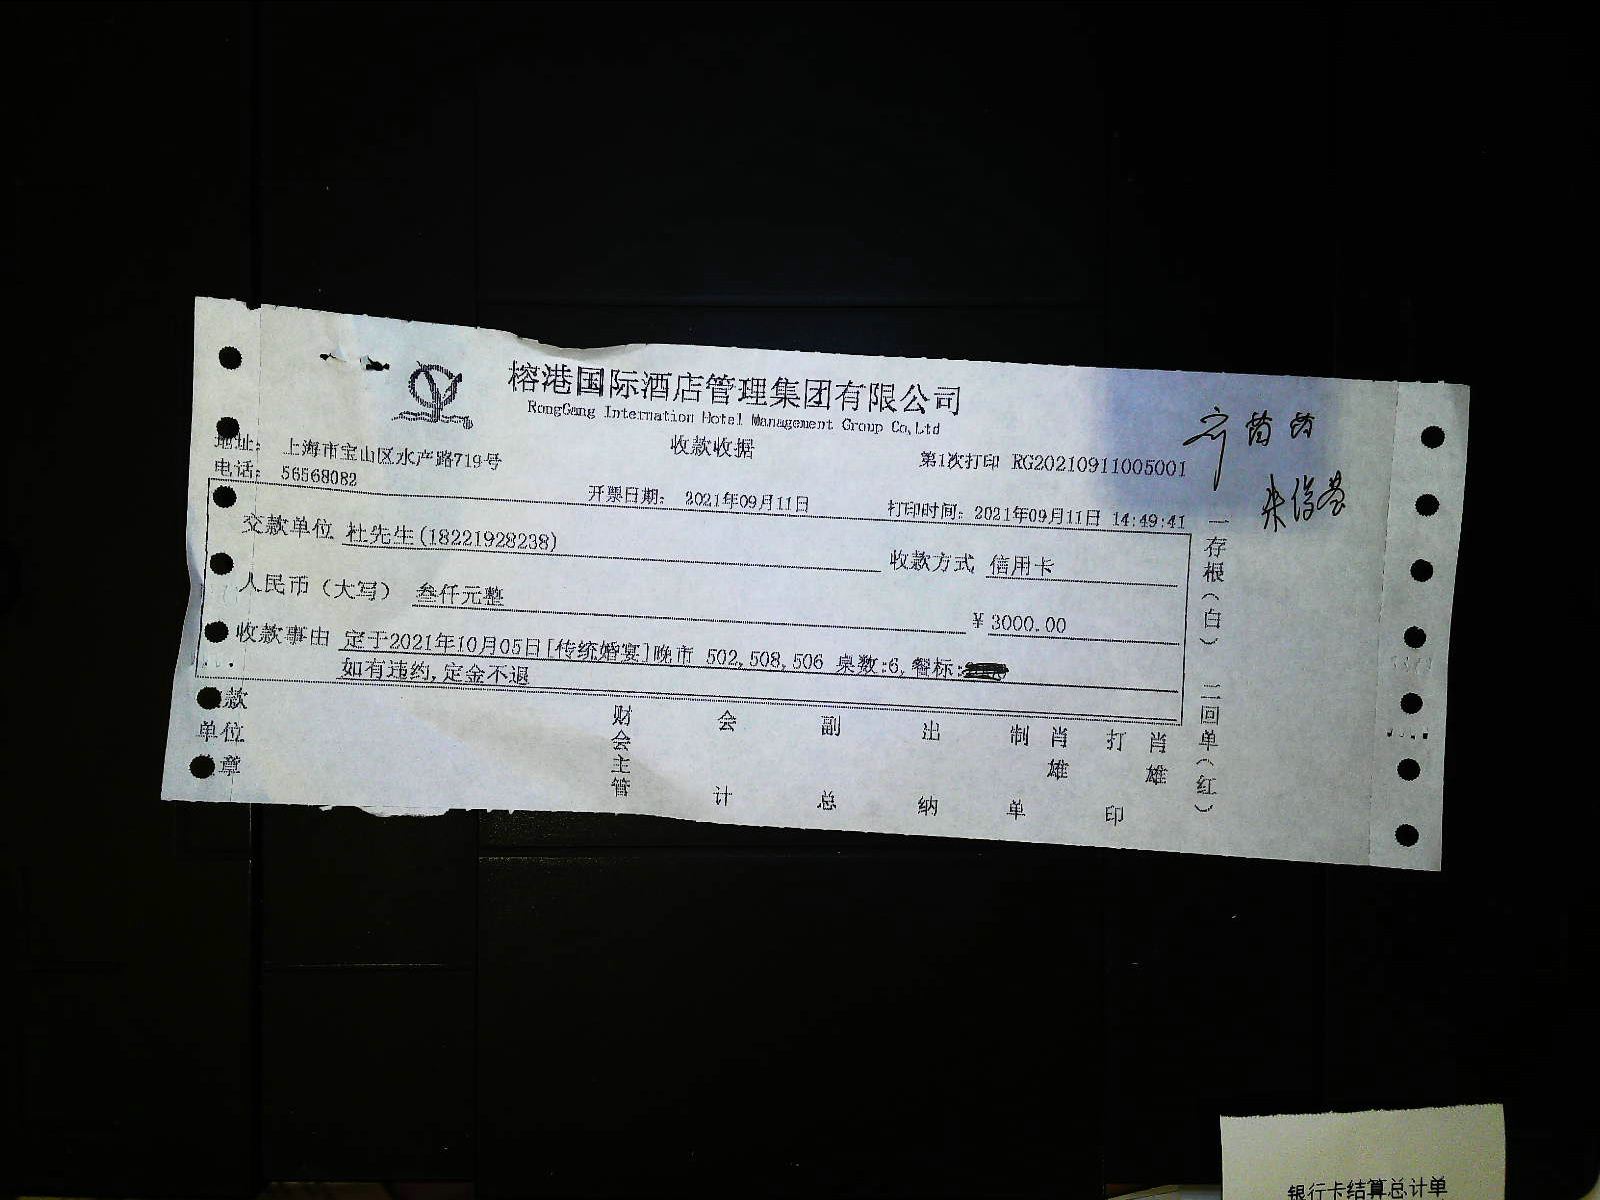 榕港国际酒店管理集团有限公司
RongGang Internation Hotel Management Group Co,Ltd
收款收据
地址： 上海市宝山区水产路719号
第1次打印 RG20210911005001
电话： 56568082
开票日期： 2021年09月11日
打印时间：2021年09月11日 14:49:41
交款单位 杜先生(18221928238)
收款方式 信用卡
人民币（大写） 叁仟元整
¥3000.00
收款事由 定于2021年10月05日[传统婚宴]晚市 502,508,506 桌数:6,餐标:
如有违约,定金不退
款单位 章
财会主管 会计 副总 出纳 制单 肖雄 打印 肖雄
一存根（白） 二回单（红）
银行卡结算总计单